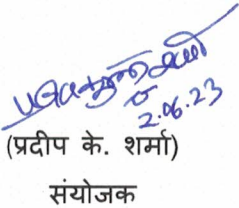 2.06.23
(प्रदीप के. शर्मा)
संयोजक